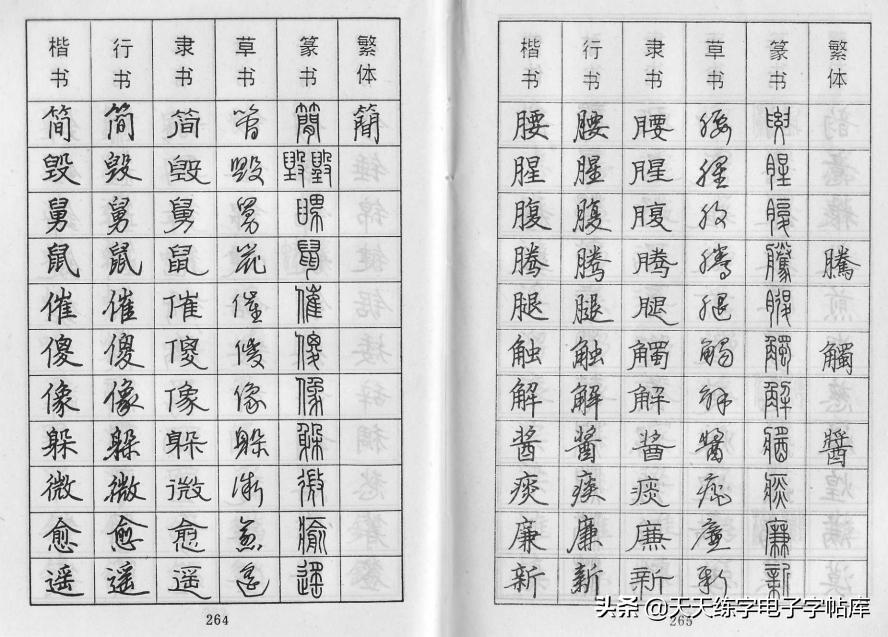 楷书 行书 隶书 草书 篆书 繁体
简 简 简 简 簡 簡
毁 毁 毁 毁 毁毁
舅 舅 舅 舅 舅
鼠 鼠 鼠 鼠 鼠
催 催 催 催 催
傻 傻 傻 傻 傻
像 像 像 像 像
躲 躲 躲 躲 躲
微 微 微 微 微
愈 愈 愈 愈 愈
遥 遥 遥 遥 遥
264
楷书 行书 隶书 草书 篆书 繁体
腰 腰 腰 腰 腰
腥 腥 腥 腥 腥
腹 腹 腹 腹 腹
腾 腾 腾 腾 騰 騰
腿 腿 腿 腿 腿
触 触 觸 觸 觸 觸
解 解 解 解 解
酱 醬 酱 醬 醬 醬
痰 痰 痰 痰 痰
廉 廉 廉 廉 廉
新 新 新 新 新
265
头条 @天天练字电子字帖库